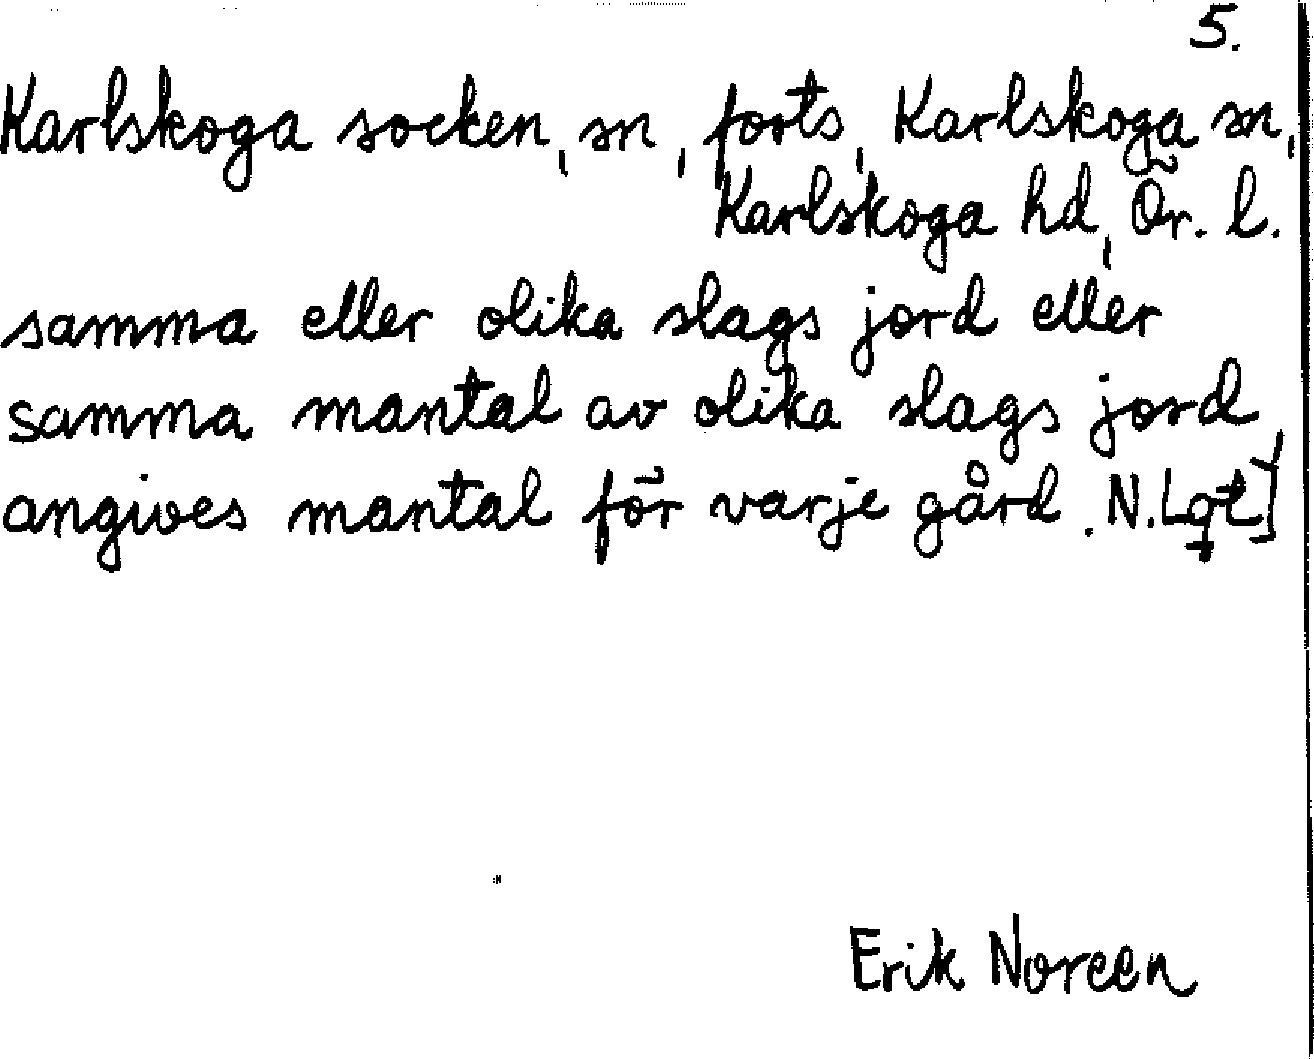 5.
Karlskoga socken, sn, forts, Karlskoga sn,
Karlskoga hd, Ör. l.
samma eller olika slags jord eller
samma mantal av olika slags jord,
angives mantal för varje gård. N.Lqt]
Erik Noreen